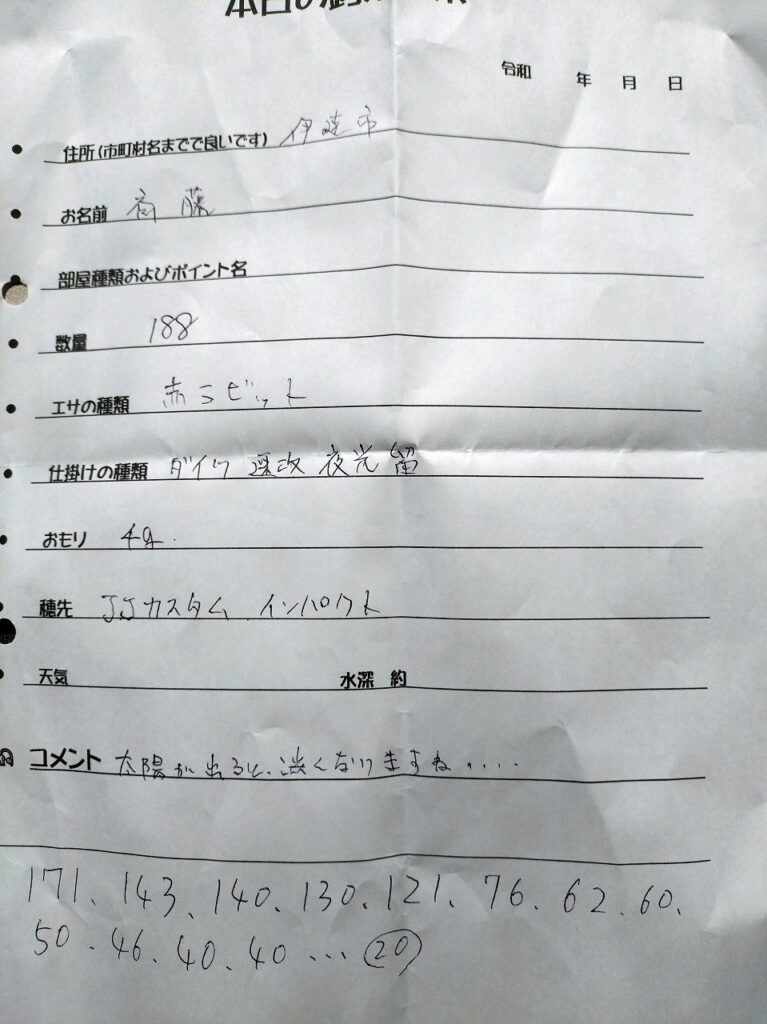 本日の釣
令和 年 月 日
住所(市町村名までで良いです) 伊達市
お名前 斉藤
部屋種類およびポイント名
数量 188
エサの種類 赤ラビット
仕掛けの種類 ダイワ 速攻 夜光 留
おもり 4g.
穂先 JJカスタム インパクト
天気 水深 約
コメント 太陽が出ると、渋くなりますね....
171、143、140、130、121、76、62、60、
50、46、40、40 … 20